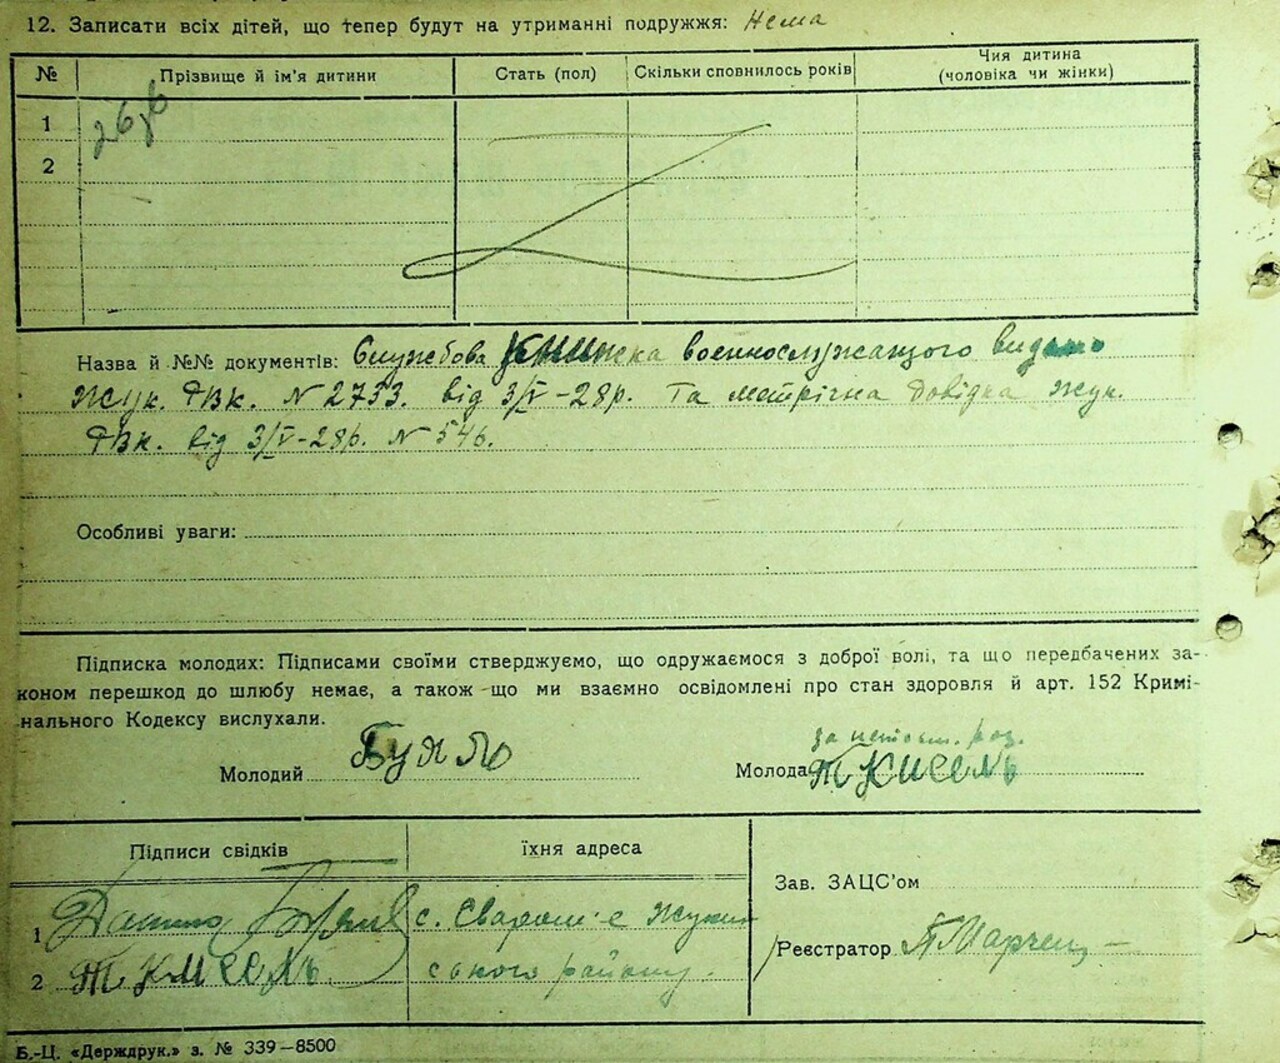 12. Записати всіх дітей, що тепер будут на утриманні подружжя: Нема
№ Прізвище й ім'я дитини Стать (пол) Скільки сповнилось років Чия дитина (чоловіка чи жінки)
1
2
Назва й №№ документів: Службова книжка военнослужащого видано
Жук. РВК. № 2733. від 3/V-28р. Та метрічна довідка Жук.
РВК. від 3/V-28р. № 546.
Особливі уваги:
Підписка молодих: Підписами своїми стверджуємо, що одружаємося з доброї волі, та що передбачених за-
коном перешкод до шлюбу немає, а також що ми взаємно освідомлені про стан здоровля й арт. 152 Кримі-
нального Кодексу вислухали.
за
Молодий Буяло Молода Т Кисель
Підписи свідків їхня адреса
Зав. ЗАЦС'ом
1 Данило с.
Реєстратор
2 Т. Кисель ського району.
Б.-Ц. «Держдрук.» з. № 339—8500